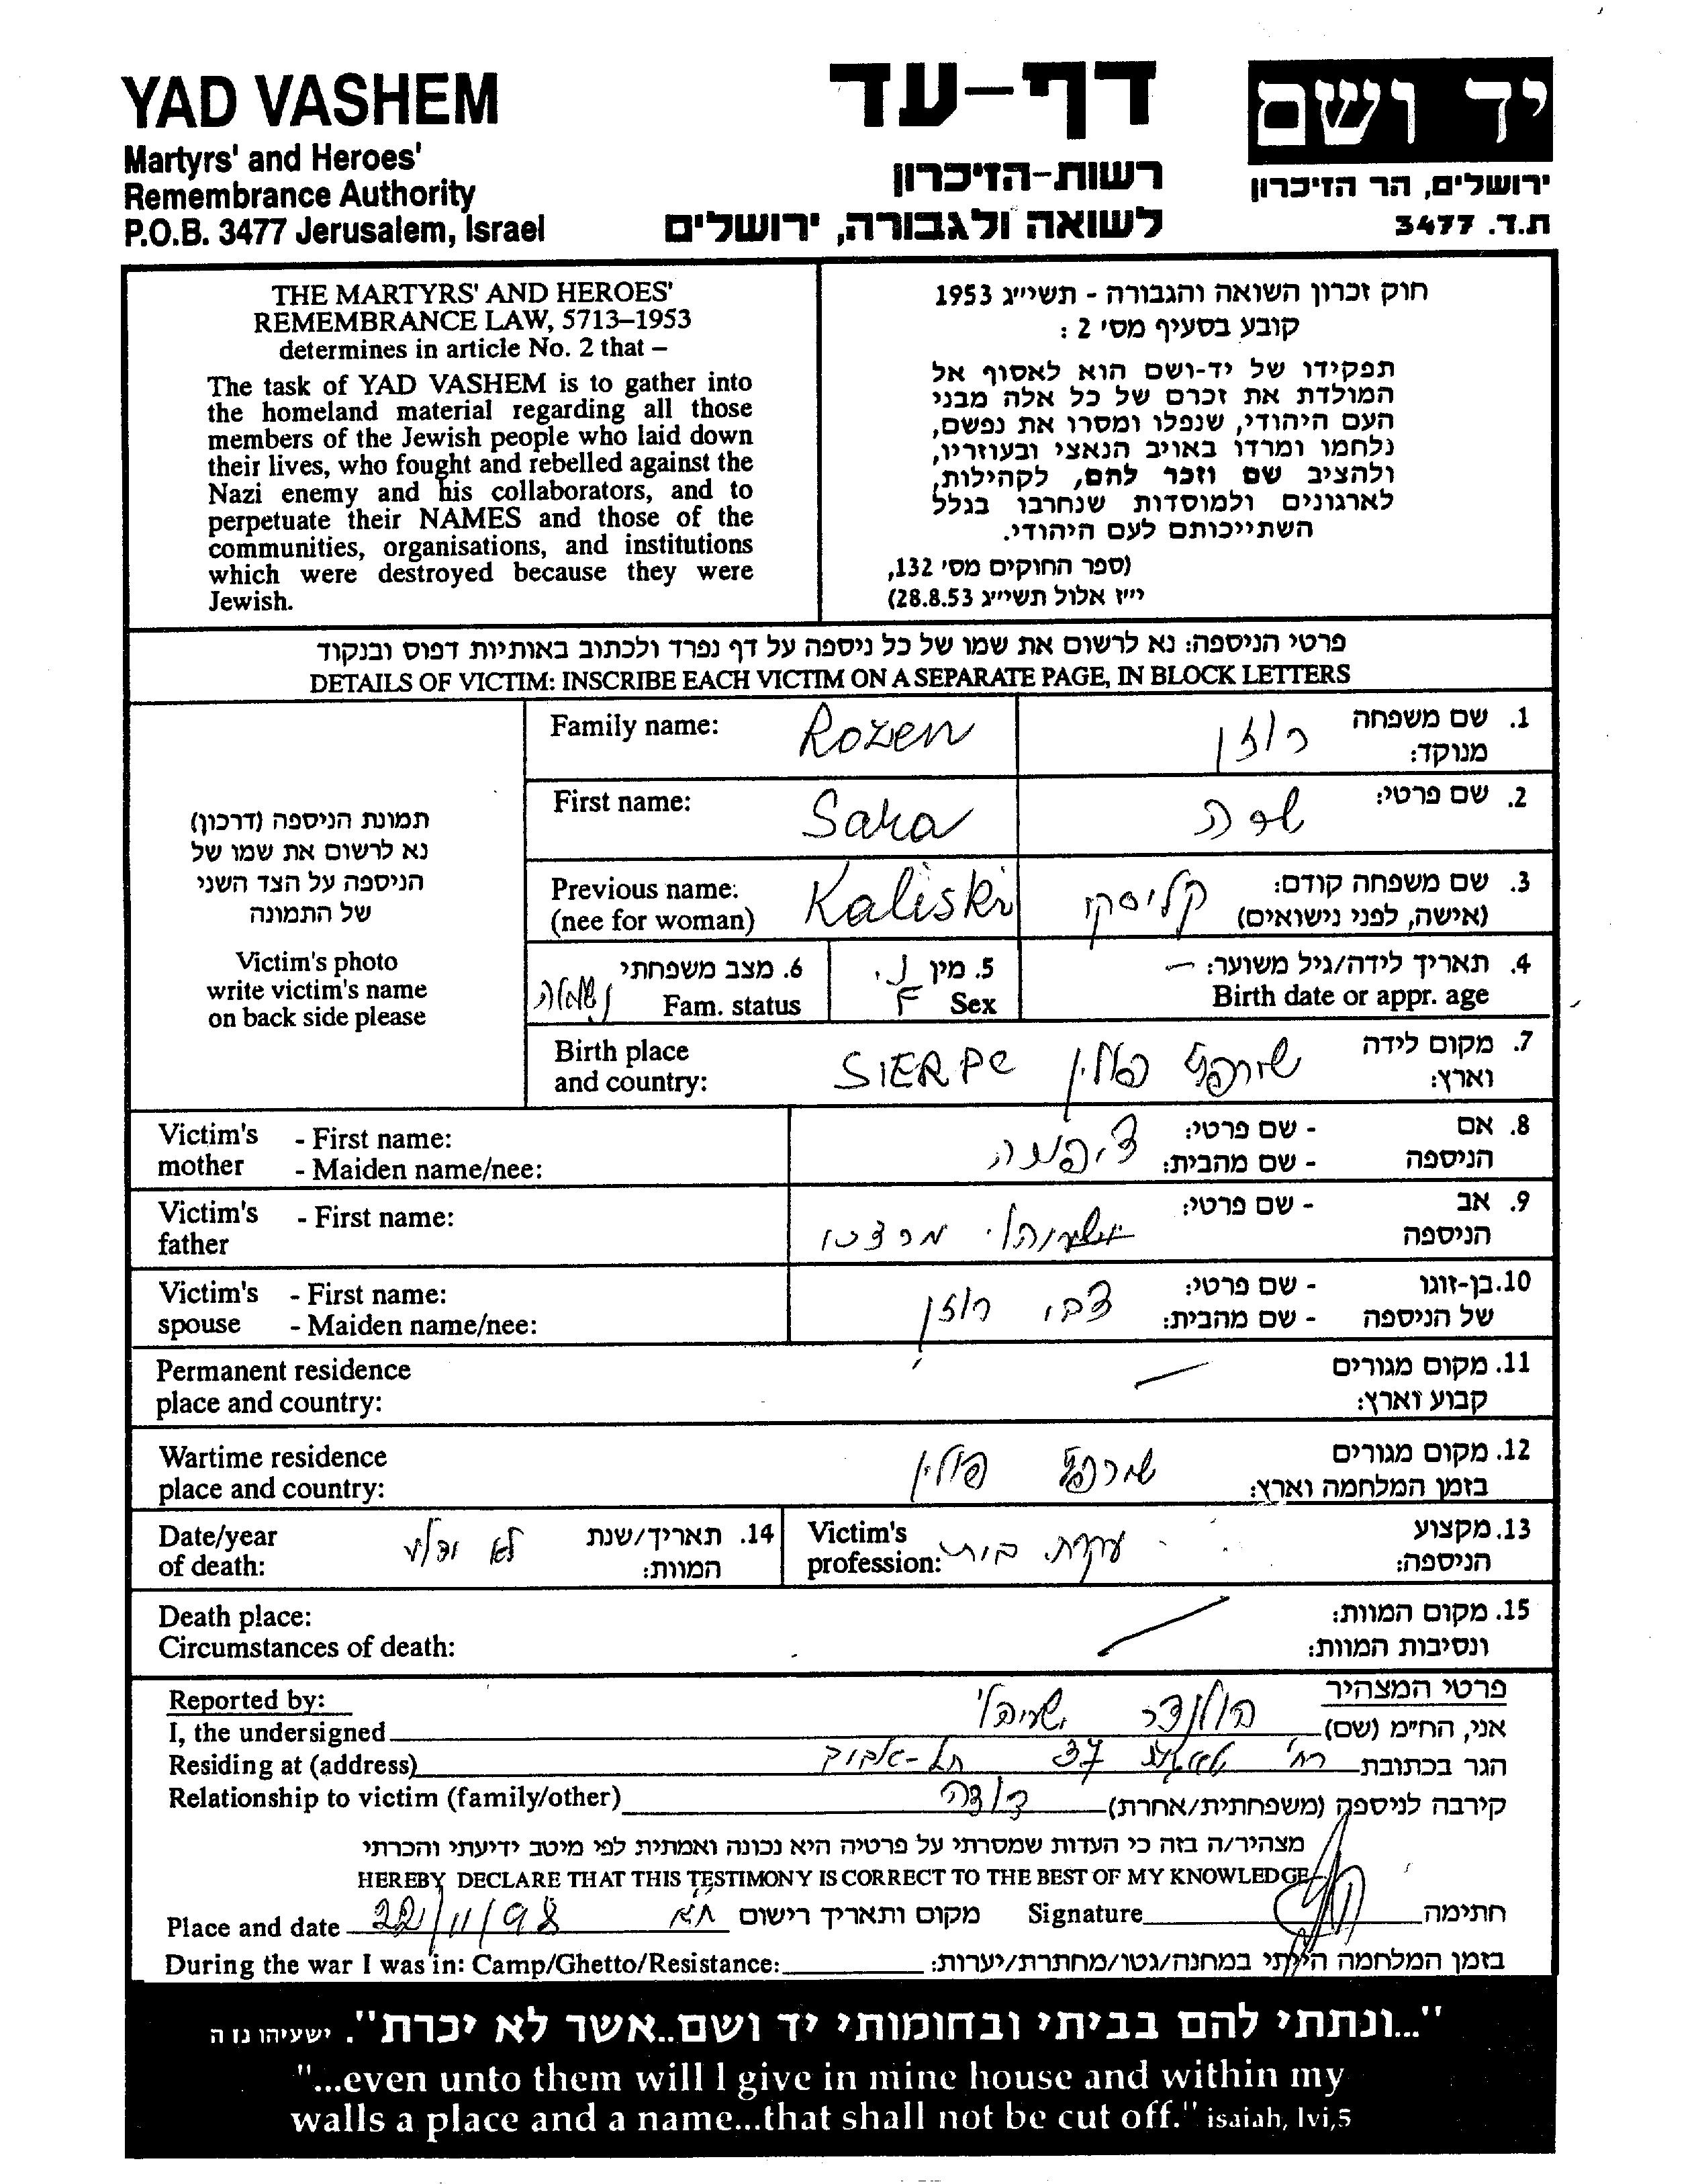 YAD VASHEM
Martyrs' and Heroes'
Remembrance Authority
P.O.B. 3477 Jerusalem, Israel
דף-עד
רשות-הזיכרון
לשואה ולגבורה, ירושלים
יד ושם
ירושלים, הר הזיכרון
ת.ד. 3477
THE MARTYRS' AND HEROES'
REMEMBRANCE LAW, 5713–1953
determines in article No. 2 that –
The task of YAD VASHEM is to gather into
the homeland material regarding all those
members of the Jewish people who laid down
their lives, who fought and rebelled against the
Nazi enemy and his collaborators, and to
perpetuate their NAMES and those of the
communities, organisations, and institutions
which were destroyed because they were
Jewish.
חוק זכרון השואה והגבורה - תשי״ג 1953
קובע בסעיף מס׳ 2 :
תפקידו של יד-ושם הוא לאסוף אל
המולדת את זכרם של כל אלה מבני
העם היהודי, שנפלו ומסרו את נפשם,
נלחמו ומרדו באויב הנאצי ובעוזריו,
ולהציב שם וזכר להם, לקהילות,
לארגונים ולמוסדות שנחרבו בגלל
השתייכותם לעם היהודי.
(ספר החוקים מס׳ 132,
י״ז אלול תשי״ג 28.8.53)
פרטי הניספה: נא לרשום את שמו של כל ניספה על דף נפרד ולכתוב באותיות דפוס ובנקוד
DETAILS OF VICTIM: INSCRIBE EACH VICTIM ON A SEPARATE PAGE, IN BLOCK LETTERS
תמונת הניספה (דרכון)
נא לרשום את שמו של
הניספה על הצד השני
של התמונה
Victim's photo
write victim's name
on back side please
Family name: Rozen רוזן 1. שם משפחה
מנוקד:
First name: Sara שרה 2. שם פרטי:
Previous name: Kaliski קליסקי 3. שם משפחה קודם:
(nee for woman) (אישה, לפני נישואים)
נשואה 6. מצב משפחתי 5. מין נ. 4. תאריך לידה/גיל משוער: –
Fam. status F Sex Birth date or appr. age
Birth place SIERPC פולין 7. מקום לידה
and country: וארץ:
Victim's - First name: ציפורה - שם פרטי: 8. אם
mother - Maiden name/nee: - שם מהבית: הניספה
Victim's - First name: מרדכי - שם פרטי: 9. אב
father הניספה
Victim's - First name: צבי רוזן - שם פרטי: 10. בן-זוגו
spouse - Maiden name/nee: - שם מהבית: של הניספה
Permanent residence 11. מקום מגורים
place and country: קבוע וארץ:
Wartime residence פולין 12. מקום מגורים
place and country: בזמן המלחמה וארץ:
Date/year לא ידוע 14. תאריך/שנת Victim's עקרת בית 13. מקצוע
of death: המוות: profession: הניספה:
Death place: 15. מקום המוות:
Circumstances of death: ונסיבות המוות:
Reported by: פרטי המצהיר
I, the undersigned הולנדר אני, החי״מ (שם)
Residing at (address) רח׳ 37 תל-אביב הגר בכתובת
Relationship to victim (family/other) דודה קירבה לניספה (משפחתית/אחרת)
מצהיר/ה בזה כי העדות שמסרתי על פרטיה היא נכונה ואמתית לפי מיטב ידיעתי והכרתי
HEREBY DECLARE THAT THIS TESTIMONY IS CORRECT TO THE BEST OF MY KNOWLEDGE
Place and date 22/11/98 ת״א מקום ותאריך רישום Signature חתימה
During the war I was in: Camp/Ghetto/Resistance: בזמן המלחמה הייתי במחנה/גטו/מחתרת/יערות:
"...ונתתי להם בביתי ובחומותי יד ושם..אשר לא יכרת". ישעיהו נו ה
"...even unto them will I give in mine house and within my
walls a place and a name...that shall not be cut off." isaiah, lvi,5